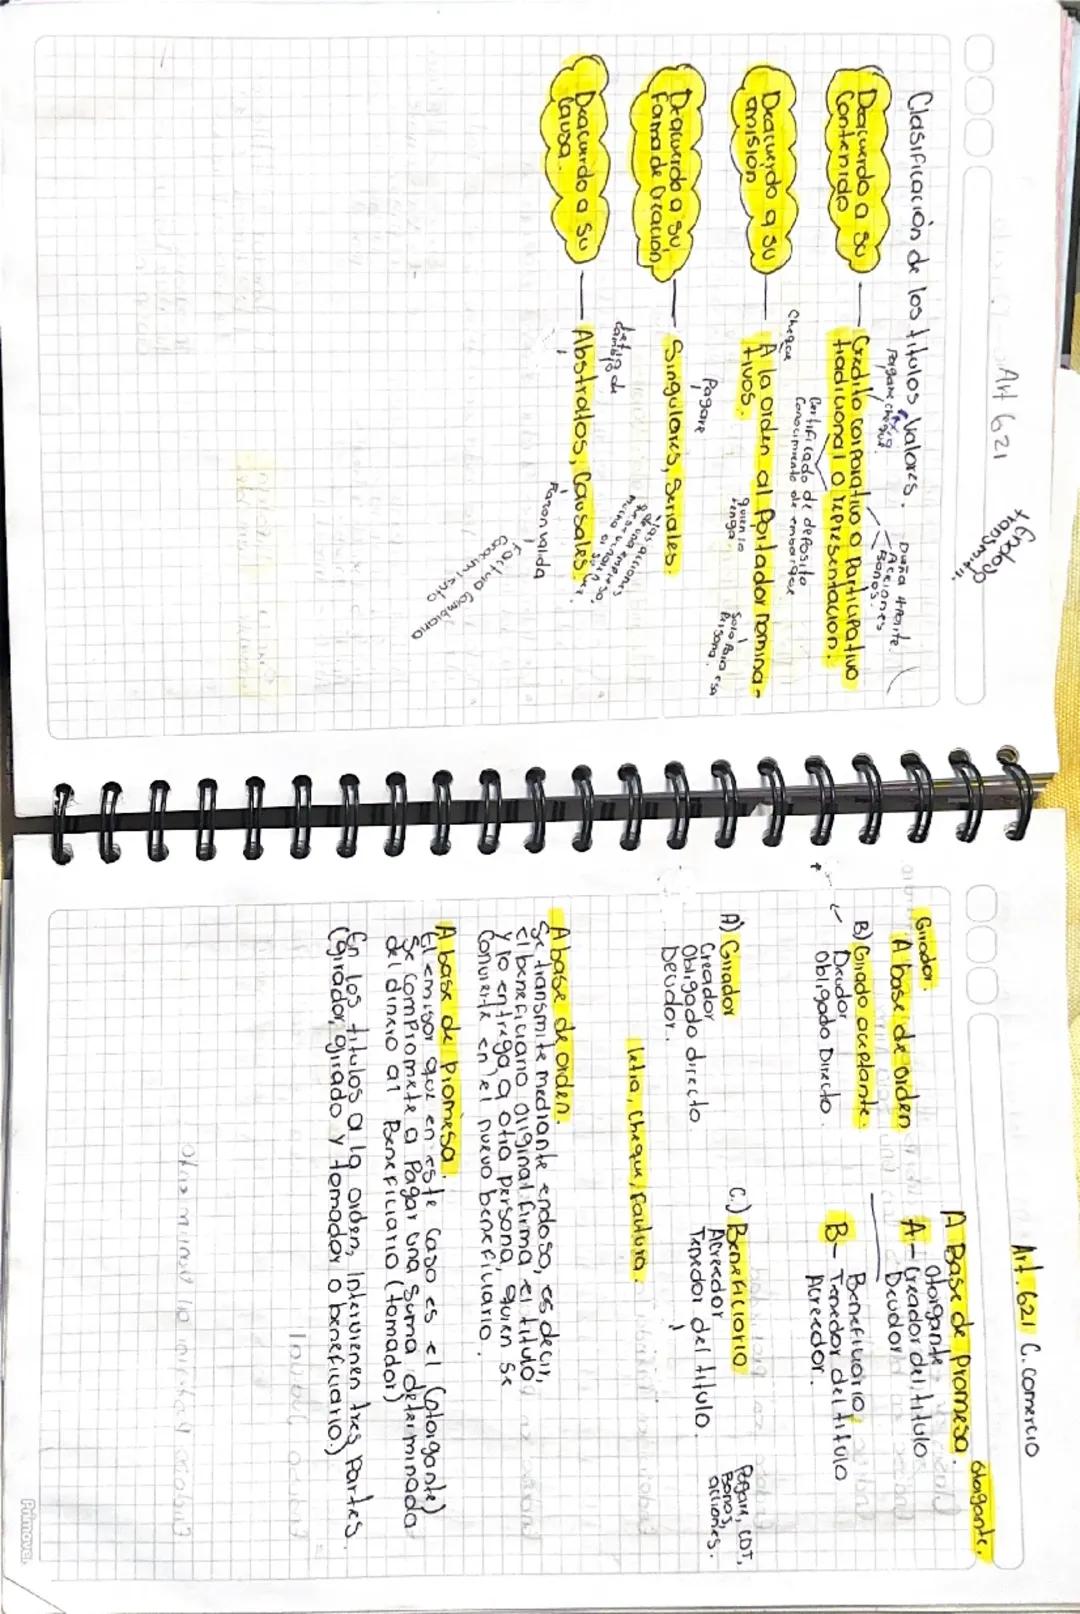 Art 621
Endoso
transmitir.
Clasificación de los titulos valores.
Pagare cheque.
Acciones
Bonos
Deacuerdo a su
Contenido
Credito corporativo o Participativo
tradicional o representacion.
Certificado de deposito
Conocimiento de embarque
Cheque
Deacuerdo a su
emision
A la orden al Portador nomina-
tivos.
Pagare
quien lo
tenga
Solo Para esa
Persona.
Deacuerdo a su
Forma de Creacion
Singulares, Seriales.
letra de
cambio
las acciones
Deacuerdo a su
Causa.
Abstratos, Causales.
Razon valida
Factura Cambiaria
Conocimiento
Art. 621 C. comercio
Girador.
A base de orden
B) Girado aceptante.
Deudor
Obligado Directo.
A) Girador
Creador
Obligado directo
Deudor.
C.) Beneficiario
Acreedor
Tenedor del titulo.
letra, Cheque, Factura.
Otorgante.
A Base de Promesa.
Otorgante
A- Creador del titulo
Deudor
Beneficiario
B- Tenedor del titulo
Acreedor.
Pagare, CDT,
Bonos,
acciones.
A base de orden.
Se transmite mediante endoso, es decir,
El beneficiario original firma el titulo
y lo entrega a otra persona, quien se
Convierte en el nuevo beneficiario.
A base de promesa.
El emisor que en este caso es el (otorgante)
Se compromete a Pagar una suma determinada
del dinero al Beneficiario (tomador)
En los titulos a la orden, Intervienen tres Partes
(girador, girado y tomador o beneficiario.)
Primavera